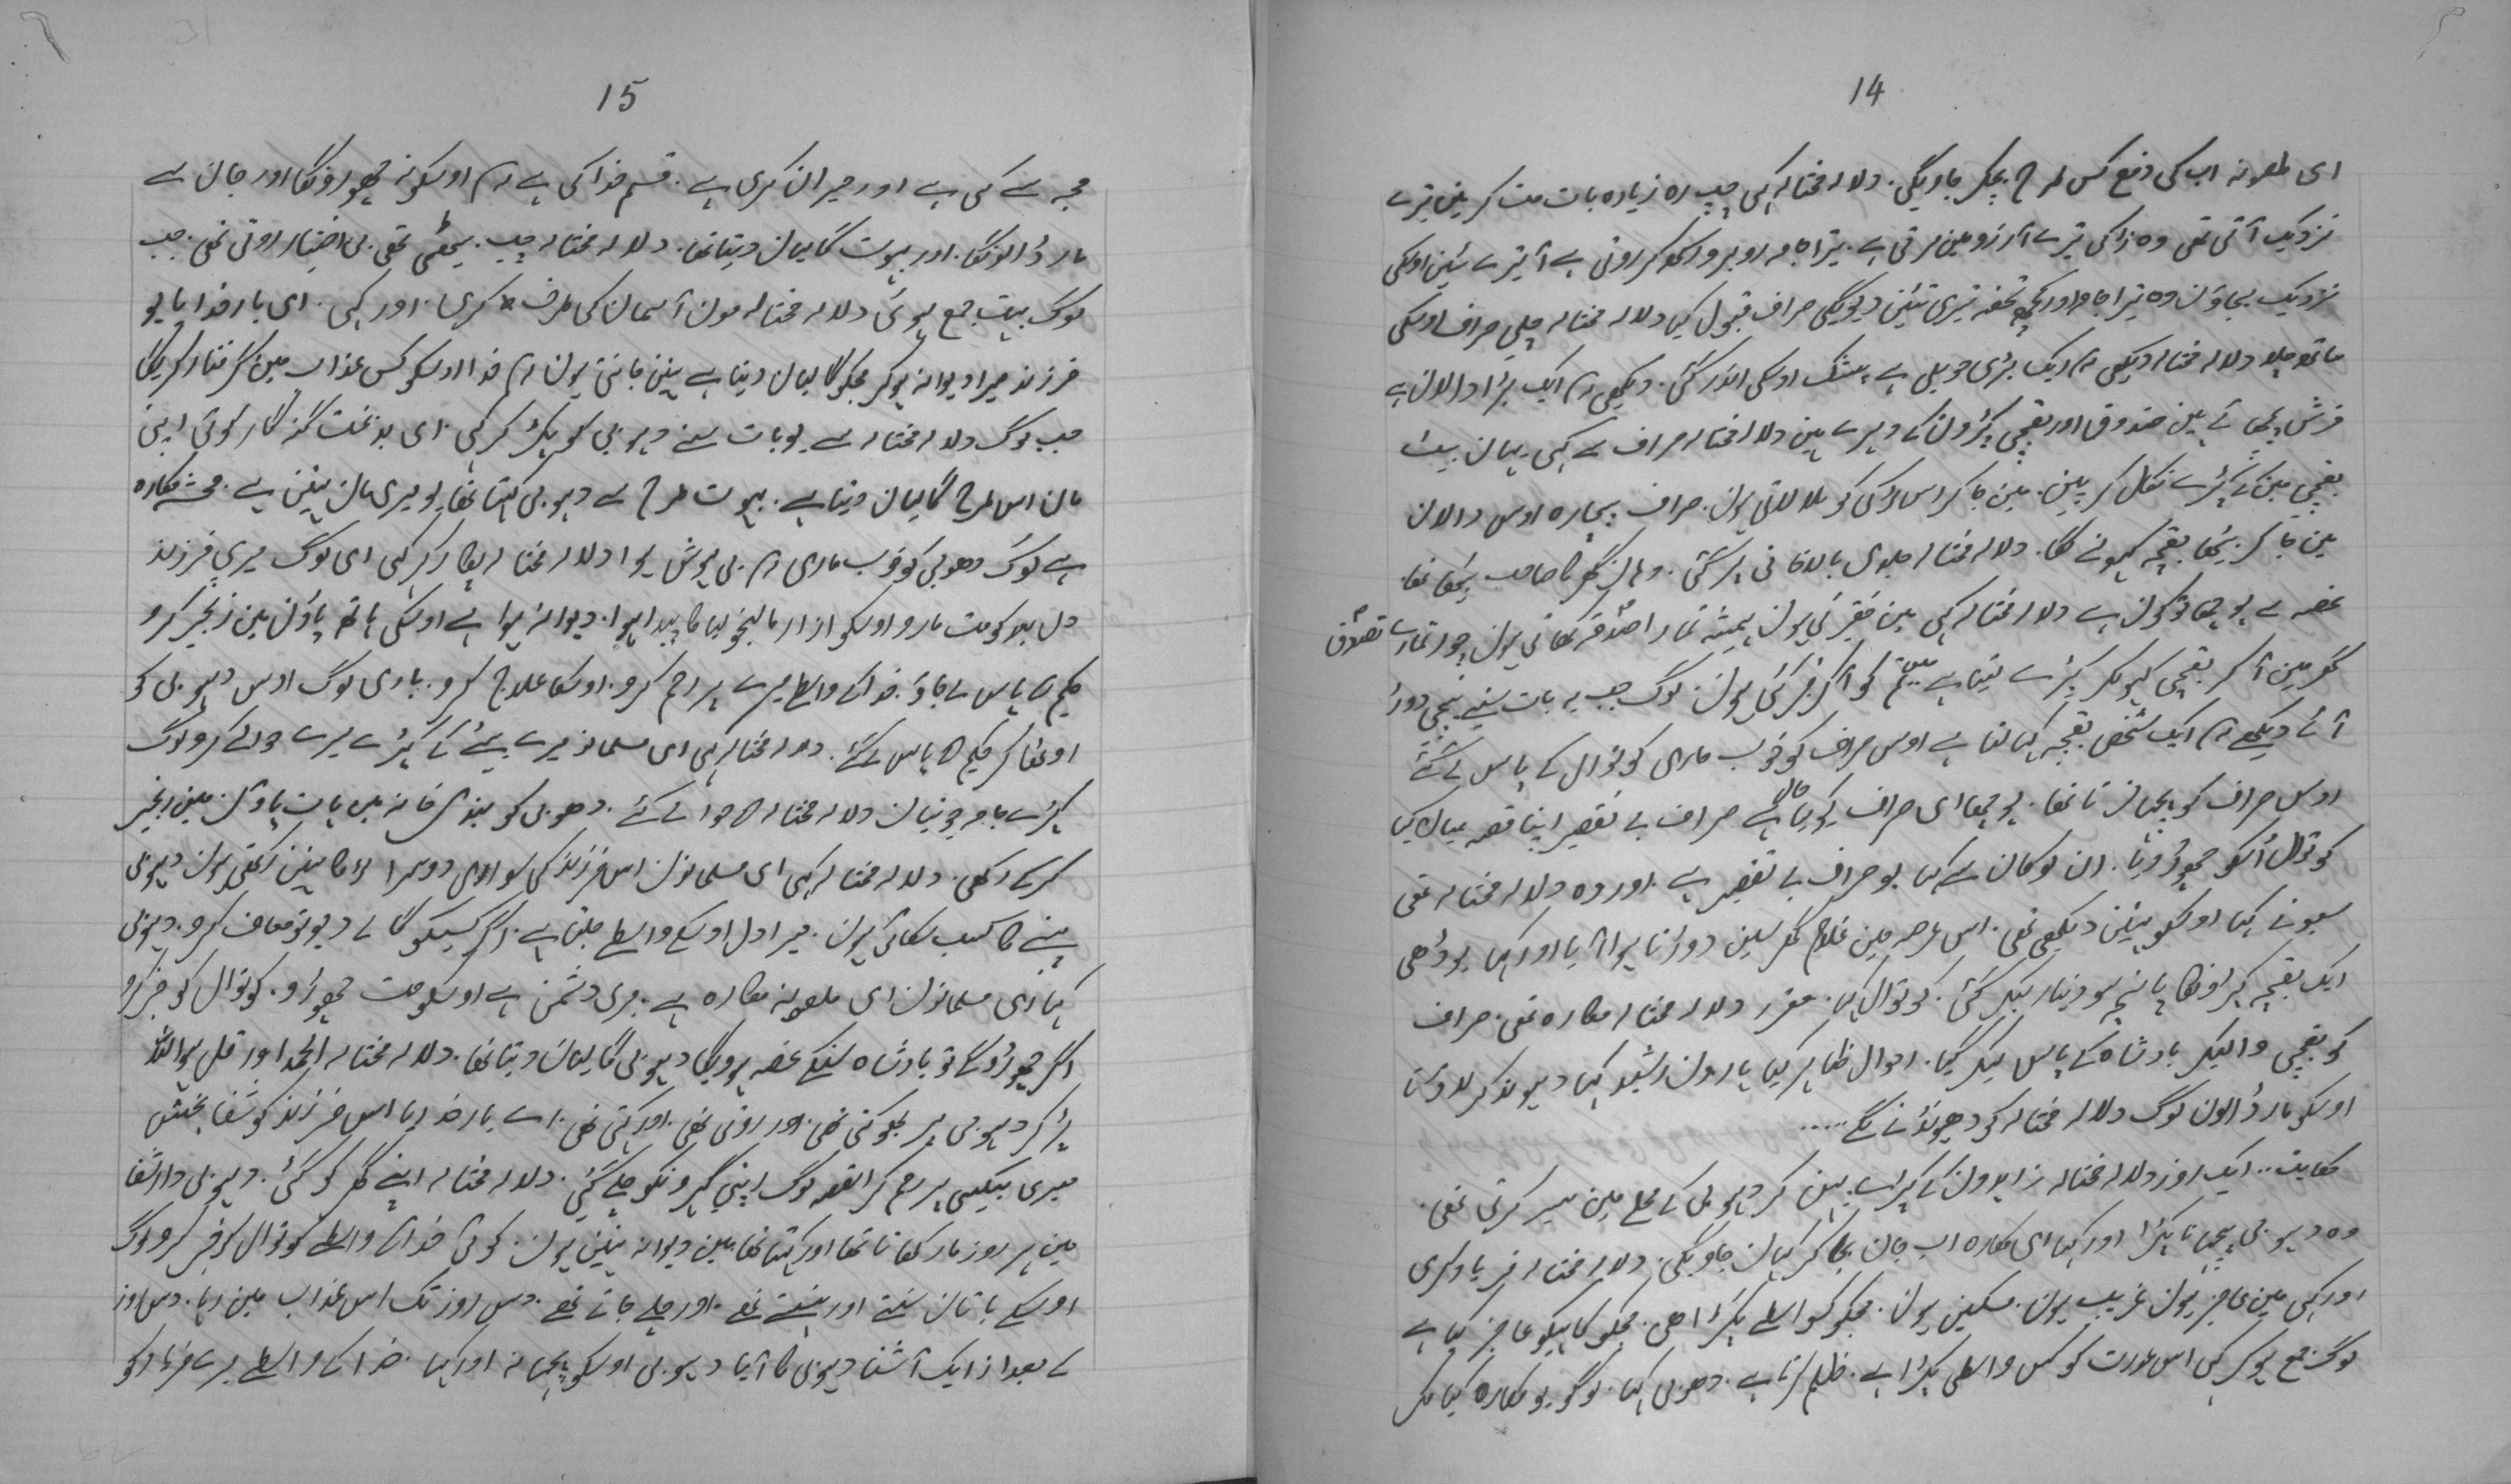 14
ای ملعونہ اب کی دفع کس طرح بچکر جاویگی. دلالہ مختالہ کہی چپ رہ زیادہ بات مت کر مین تیرے
نزدیک آتی تھی وہ زاکی تیرے آرزو مین مرتی ہے. تیرا جامہ روبرو رکھکر روتی ہے آ تیرے تئین اوسکی
نزدیک لیجاؤن وہ تیرا جامہ اور کچھ تحفہ تیری تئین دیویگی صراف قبول کیا دلالہ مختالہ چلی صراف اوسکی
ساتھ چلا دلالہ مختالہ دیکھی کہ ایک بڑی حویلی ہے بیشک اوسکی اندر گئی. دیکھی کہ ایک بڑا دالان ہے
فرش بچھائے ہین صندوق اور بقچی کپڑون کے دہرے ہین دلالہ مختالہ صراف سے کہی یہان بیٹ
بقچی مین کے کپڑے نکال کر پہین. مین جاکر اس لڑکی کو بلا لاتی ہون. صراف بیچارہ اوس دالان
مین جاکر بیٹھا بقچہ کہولنے لگا. دلالہ مختالہ جلدی بالاخانی پر گئی. وہان گھر کا صاحب بیٹھا تھا.
غصہ سے پوچھا تو کون ہے دلالہ مختالہ کہی مین فقیرنی ہون ہمیشہ تمارا صدقہ کھاتی ہون چور تمارے تصدق
گھر مین آکر بقچی کہولکر کپڑے لیتا ہے مین تم کو آکر خبر کئی ہون. لوگ جب یہ بات سنے نیچی دوڑ
آئے دیکھے کہ ایک شخص بقچہ کہولتا ہے اوس صراف کو خوب ماری کوتوال کے پاس لے گئے
اوس صراف کو پچھانتا تھا. پوچھا ای صراف یو کیا حال ہے صراف بے تقصیر اپنا قصہ بیان کیا
کوتوال اسکو چھوڑ دیا. ان لوکان سے کہا یو صراف بے تقصیر ہے اور وہ دلالہ مختالہ تھی
سبونے کہا اوسکو نہین دیکھی تھی. اس عرصہ مین غلام گھر سین دوڑتا ہوا آیا اور کہا بوڈھی
ایک بقچہ کپڑونکا پانچ سو دینار لیکر گئی. کوتوال کہا. مقرر دلالہ مختالہ مکارہ تھی. صراف
کو بقچی والیکر بادشاہ کے پاس لیکر گیا. احوال ظاہر کیا ہارون رشید کہا دہونڈ کر لاؤ تا
اوسکو مار ڈالون لوگ دلالہ مختالہ کو دھونڈنے لگے.....
حکایت.. ایک روز دلالہ مختالہ زاہدون کے کپڑے پہن کر دہوبی کے محلے مین سیر کرتی تھی.
وہ دہوبی پچھانا پکڑا اور کہا ای مکارہ اب جان بچاکر کہان جاویگی. دلالہ مختالہ فریاد کری
اور کہی مین عاجز ہون غریب ہون. مسکین ہون. مجکو کسواسطے پکڑا ھی. مجکو کاہیکو عاجز کیا ہے
لوگ جمع ہوکر کہی اس عورت کو کس واسطے پکڑا ہے. ظلم کرتا ہے. دھوبی کہا. لوگو یو مکارہ کیا مکر
15
مجہ سے کی ہے اور حیران کری ہے. قسم خدا کی ہے کہ اوسکو نہ چھوڑونگا اور جان سے
مار ڈالونگا. اور بہوت گالیان دیتا تھا. دلالہ مختالہ چپ بیٹھی تھی. بی اختیار روتی تھی. جب
لوگ بہت جمع ہوئی دلالہ مختالہ مون آسمان کی طرف کری اور کہی. ای بار خدایا یو
فرزند میرا دیوانہ ہوکر مجکو گالیان دیتا ہے نہین جانتی ہون کہ خدا اوسکو کس عذاب مین گرفتار کریگا
جب لوگ دلالہ مختالہ سے یو بات سنے دہوبی کو پکڑ کر کہی. ای بدبخت گنہگار کوئی اپنی
مان اس طرح گالیان دیتا ہے. بہوت طرح سے دہوبی کہتا تھا یو میری مان نہین ہے. مکارہ
ہے لوگ دھوبی کو خوب ماری کہ بی ہوش ہوا دلالہ مختالہ پکار کر کہی ای لوگ میری فرزند
دل بند کو مت مارو اوسکو ازار مالیخولیا کا پیدا ہوا. دیوانہ ہوا ہے اوسکی ہاتھ پاؤن مین زنجیر کرو
حکیم کے پاس لے جاؤ. خدا کے واسطے میرے پر رحم کرو. اوسکا علاج کرو. باری لوگ اوس دہوبی کو
اوٹھا کر حکیم کے پاس لے گئے. دلالہ مختالہ کہی ای مسلمانو میرے بیٹے کے کپڑے میرے حوالے کرو لوگ
کپڑے جامہ جوتیان دلالہ مختالہ کے حوالے کئے. دھوبی کو بندی خانہ مین ہات پاؤن مین زنجیر
کرکے رکھی. دلالہ مختالہ کہی ای مسلمانون اس فرزند کی سوای دوسرا لڑکا نہین رکھتی ہون دہوبی
پنے کا کسب سکھائی ہون. میرا دل اوسکے واسطے جلتا ہے. اگر کسیکو گالی دیو تو معاف کرو. دہوبی
کہا ای مسلمانون ای ملعونہ مکارہ ہے. میری دشمن ہے اوسکو مت چھوڑو. کوتوال کو خبر کرو
اگر چھوڑوگے تو بادشاہ سنکے غصہ ہویگا دہوبی گالیان دیتا تھا. دلالہ مختالہ الحمد اور قل ہو اللہ
پڑ کر دہوبی پر پھوکتی تھی. اور روتی تھی. اور کہتی تھی. اے بار خدایا اس فرزند کو شفا بخش
میری بیکسی پر رحم کر القصہ لوگ اپنی گہرونکو چلے گئے. دلالہ مختالہ اپنے گھر کو گئی. دہوبی دار الشفا
مین ہر روز مار کھاتا تھا اور کہتا تھا مین دیوانہ نہین ہون. کوئی خدا کے واسطے کوتوال کو خبر کرو لوگ
اوسکے باتان سنتے اور ہنستے تھے. اور چلے جاتے تھے. دس روز تک اس عذاب مین رہا. دس روز
کے بعد از ایک آشنا دہوبی کا آیا دہوبی اوسکو پچھانا اور کہا. خدا کے واسطے میرے فریاد کو